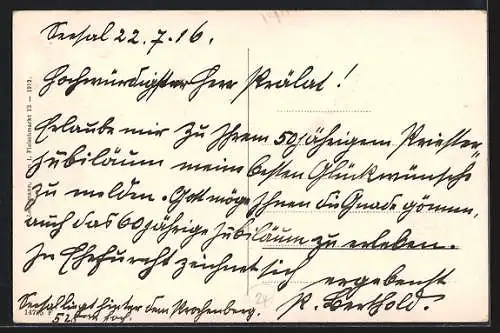 Seesal 22.7.16.
Hochwürdigster Herr Prälat!
Erlaube mir zu Ihrem 50jährigem Priester-
Jubiläum meine besten Glückwünsche
zu melden. Gott möge Ihnen die Gnade gönnen,
auch das 60jährige Jubiläum zu erleben.
In Ehrfurcht zeichnet sich
ergebenst
P. Berthold.
Seesal liegt hinter dem
I. Fleischmarkt
1912.